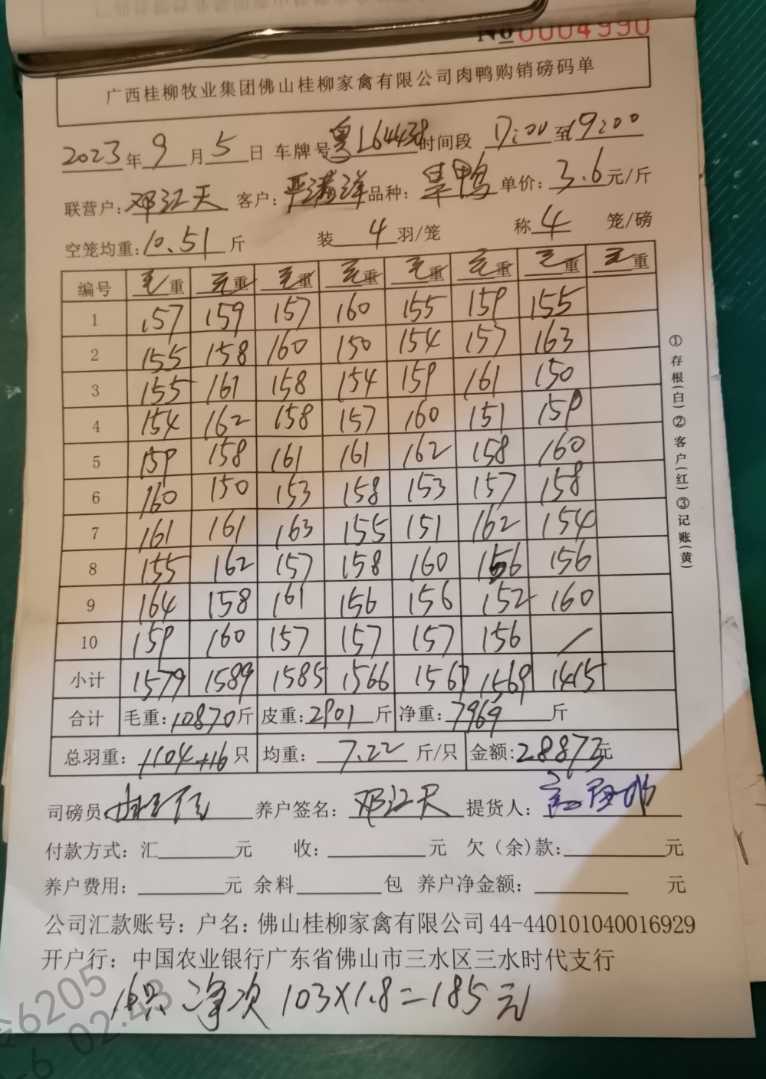 No 0004990
广西桂柳牧业集团佛山桂柳家禽有限公司肉鸭购销磅码单
2023年 9 月 5 日 车牌号 粤L64438 时间段 17:00 至 19:00
联营户: 邓江天 客户: 品种: 单价: 3.6 元/斤
空笼均重: 10.51 斤 装 4 羽/笼 称 4 笼/磅
编号 毛重 毛重 毛重 毛重 毛重 毛重 毛重 毛重
1 157 159 157 160 155 159 155
2 155 158 160 150 154 157 163
3 155 161 158 154 159 161 150
4 154 162 158 157 160 151 159
5 159 158 161 161 162 158 160
6 160 150 153 158 153 157 158
7 161 161 163 155 151 162 154
8 155 162 157 158 160 156 156
9 164 158 161 156 156 152 160
10 159 160 157 157 157 156 /
小计 1579 1589 1585 1566 1567 1569 1415
合计 毛重: 10870 斤 皮重: 2901 斤 净重: 7969 斤
总羽重: 1104+16 只 均重: 7.22 斤/只 金额: 28873 元
司磅员 养户签名: 邓江天 提货人:
付款方式: 汇 元 收: 元 欠(余)款: 元
养户费用: 元 余料 包 养户净金额: 元
公司汇款账号: 户名: 佛山桂柳家禽有限公司 44-440101040016929
开户行: 中国农业银行广东省佛山市三水区三水时代支行
16只 净次 103×1.8=185元
①存根(白)②客户(红)③记账(黄)
6205
-6 02:43